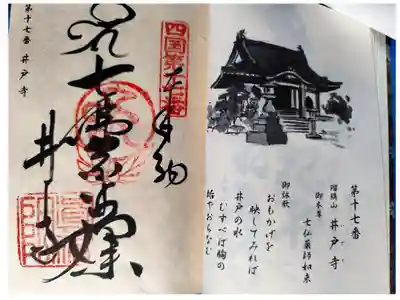 第十七番
瑠璃山 井戸寺
御本尊 七仏薬師如来
御詠歌
おもかげを
映してみれば
井戸の水
むすべば胸の
垢やおちなむ
四国第十七番
奉納
井戸寺
第十七番 井戸寺